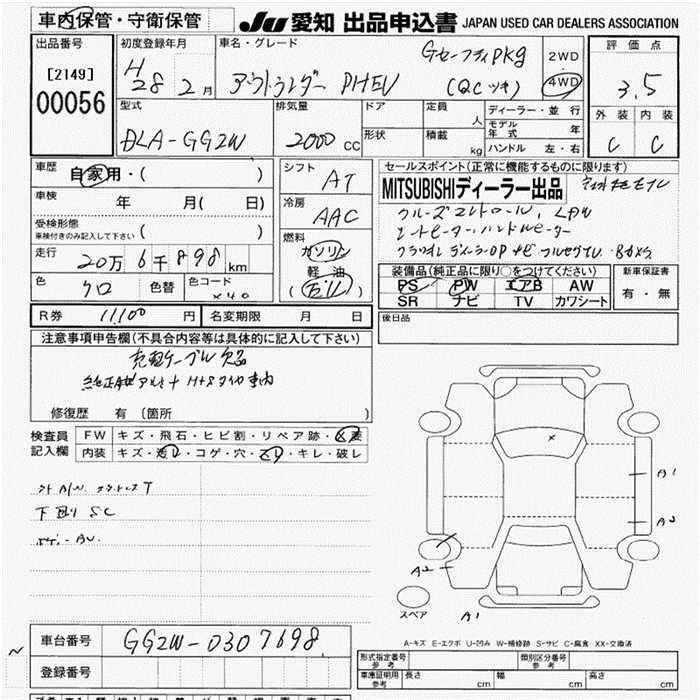 車内保管・守衛保管
Ju 愛知 出品申込書 JAPAN USED CAR DEALERS ASSOCIATION
出品番号
[2149]
00056
初度登録年月
H28 2月
車名・グレード
アウトランダー PHEV
Gセーフティpkg
(QCツキ)
2WD
4WD
評価点
3.5
外装 内装
C C
型式
DLA-GG2W
排気量
2000 CC
ドア
形状
定員 人
積載 kg
ディーラー・並行
モデル年式 年
ハンドル 左・右
車歴 自家用・( )
車検 年 月( 日)
受検形態
車検付きのみ記入して下さい ( )
走行 20万6千898 km
色 クロ 色替 色コード X40
シフト AT
冷房 AAC
燃料
ガソリン
軽油
セールスポイント(正常に機能するものに限ります)
MITSUBISHIディーラー出品
クルーズコントロール、LDW
シートヒーター、ハンドルヒーター
装備品(純正品に限り○をつけてください)
PS PW エアB AW
SR ナビ TV カワシート
新車保証書
有・無
R券 11,100円 名変期限 月 日
後日品
注意事項申告欄(不具合内容等は具体的に記入して下さい)
充電ケーブル欠品
修復歴 有(箇所 )
検査員記入欄
FW キズ・飛石・ヒビ割・リペア跡・X要
内装 キズ・汚レ・コゲ・穴・スレ・キレ・破レ
下回り SC
A1
A2
A2
A1
スペア
A-キズ E-エクボ U-凹み W-補修跡 S-サビ C-腐食 XX-交換済
車台番号 GG2W-0307698
登録番号
形式指定番号 参考
類別区分番号 参考
車庫証明用 参考 長さ cm 幅 cm 高さ cm